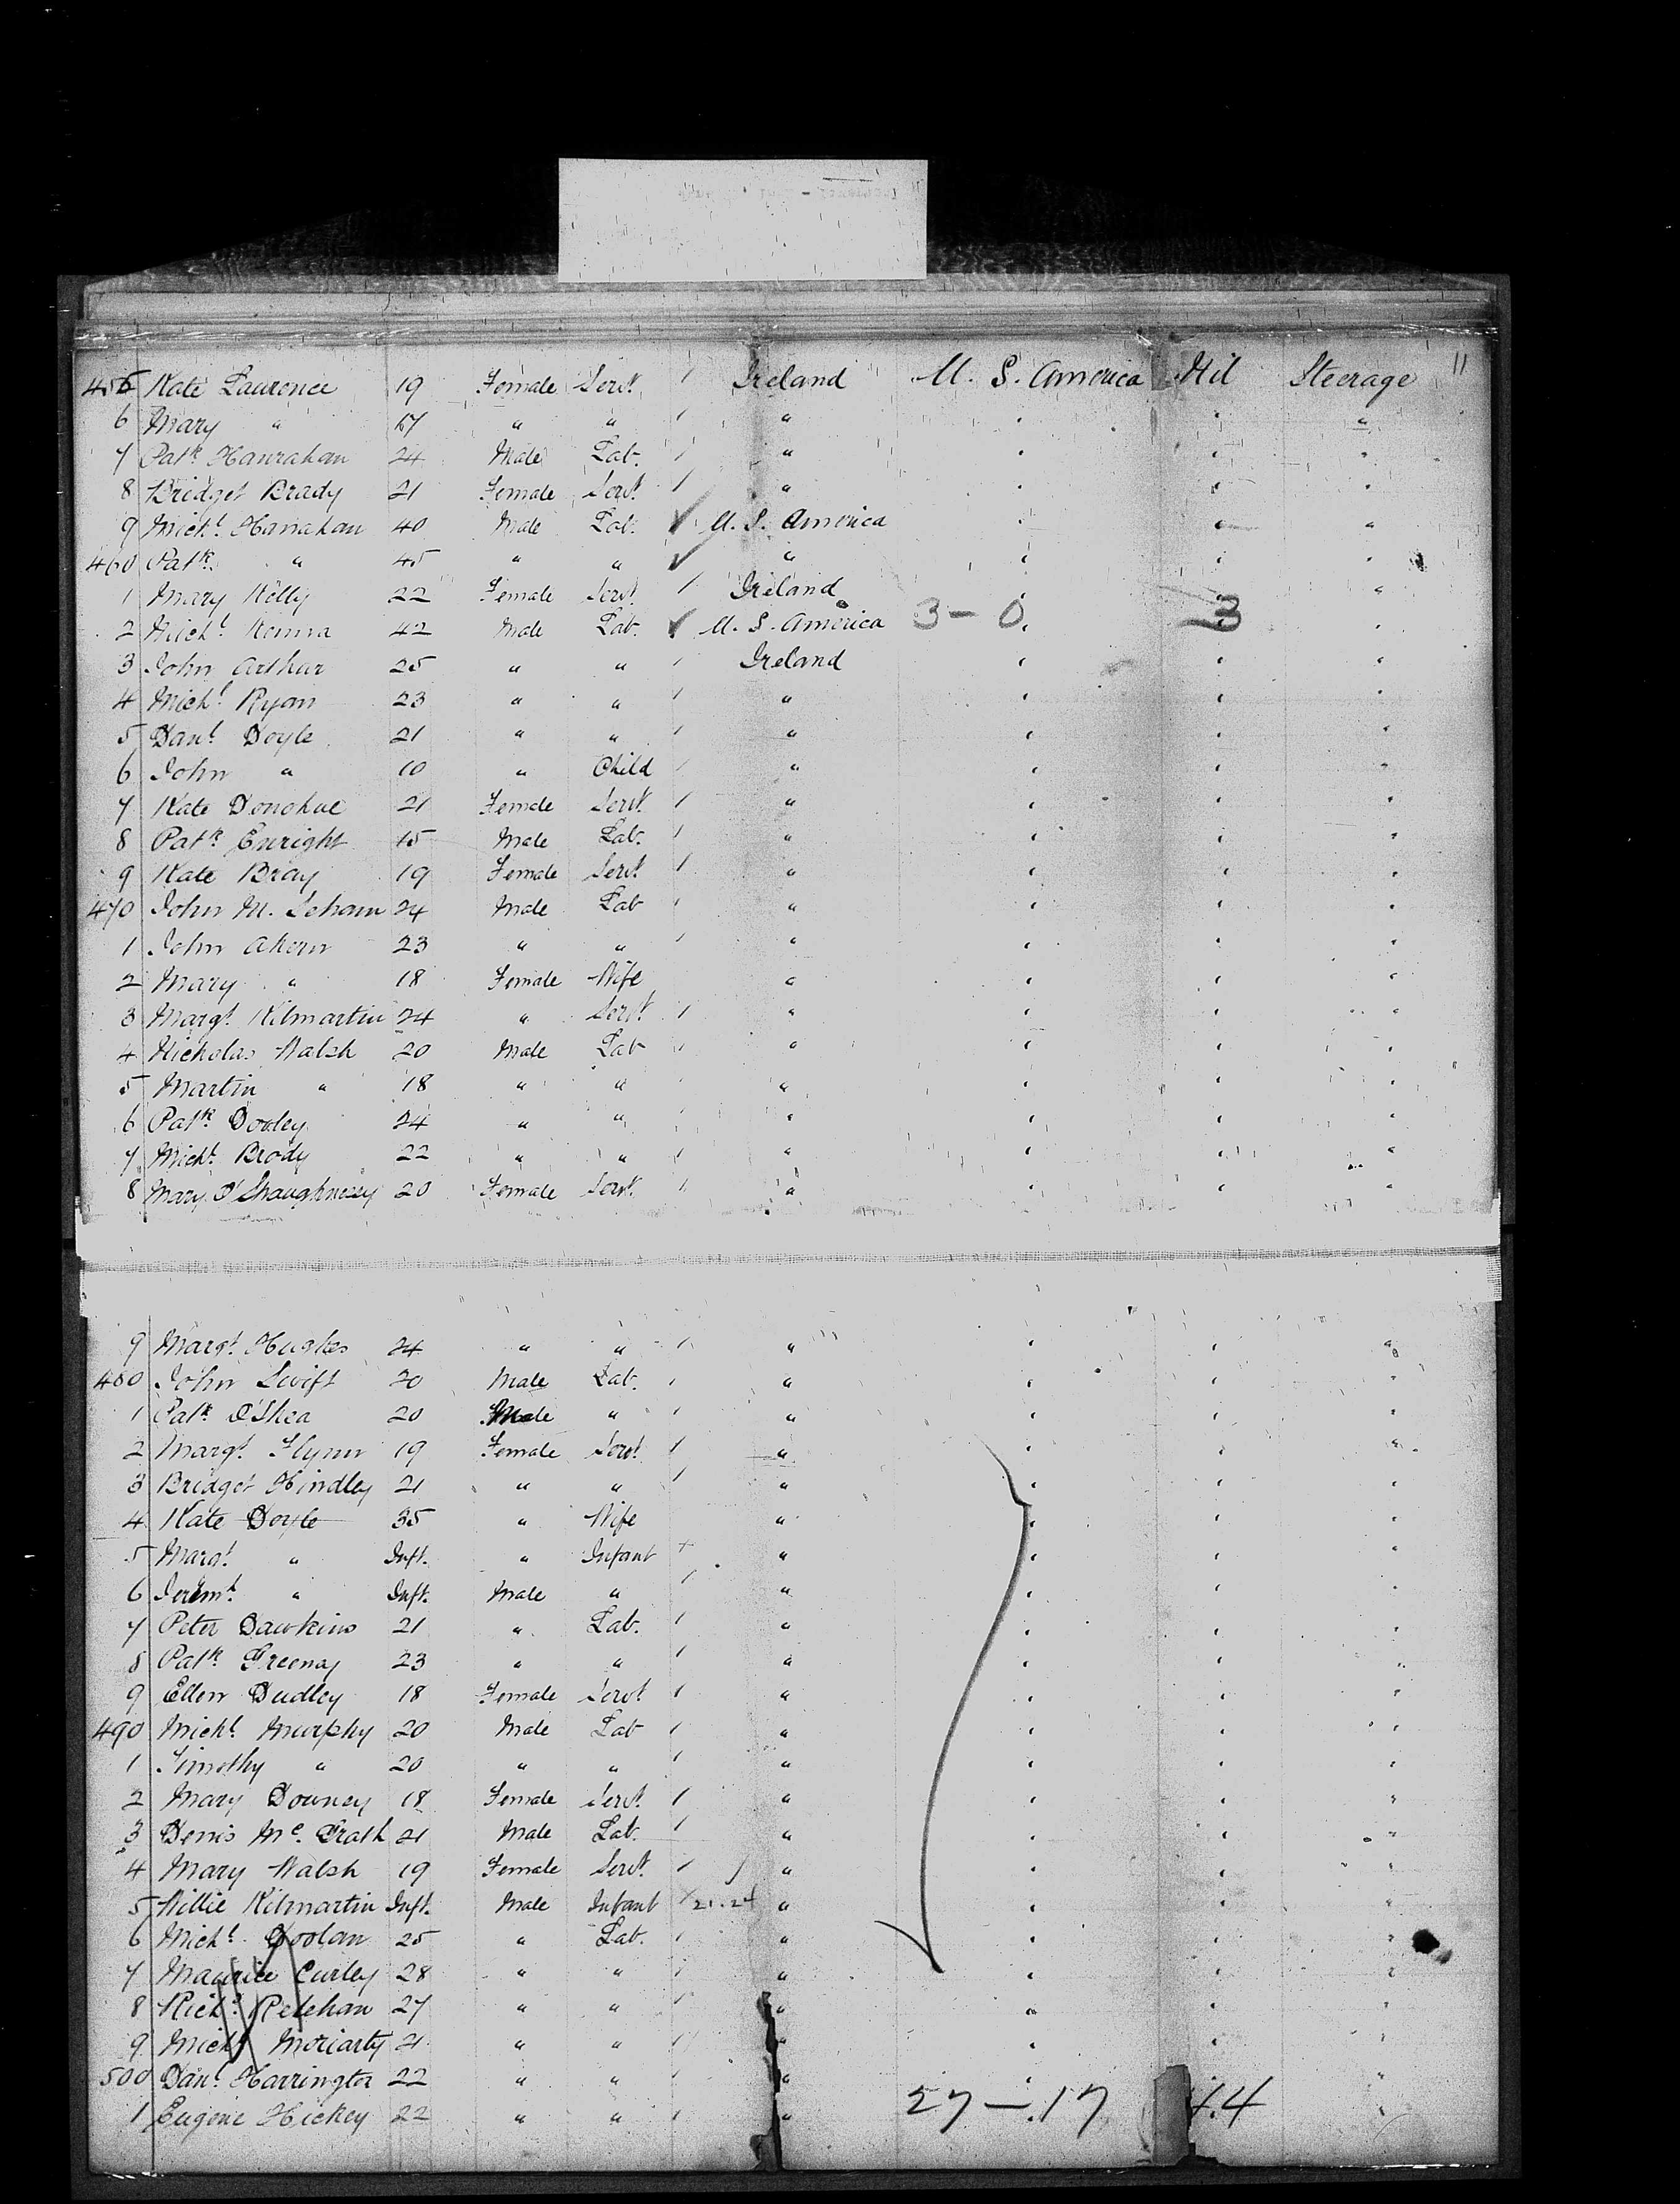 11
455 Kate Laurence 19 Female Servt. / Ireland U. S. America Nil Steerage
6 Mary " 17 " " / " " " "
7 Patk. Hanrahan 24 Male Lab. / " " " "
8 Bridget Brady 21 Female Servt. / " " " "
9 Michl. Hanrahan 40 Male Lab. ✓ U. S. America " " "
460 Patk. " 45 " " ✓ " " " "
1 Mary Kelly 22 Female Servt. / Ireland " " "
2 Michl. Kenna 42 Male Lab. ✓ U. S. America 3 - 0 " 3 "
3 John Arthur 25 " " / Ireland " " "
4 Michl. Ryan 23 " " / " " " "
5 Danl. Doyle 21 " " / " " " "
6 John " 10 " Child / " " " "
7 Kate Donohue 21 Female Servt. / " " " "
8 Patk. Enright 15 Male Lab. / " " " "
9 Kate Bray 19 Female Servt. / " " " "
470 John M. 24 Male Lab / " " " "
1 John Ahern 23 " " / " " " "
2 Mary " 18 Female Wife " " " "
3 Margt. Kilmartin 24 " Servt. / " " " "
4 Nicholas Walsh 20 Male Lab / " " " "
5 Martin " 18 " " / " " " "
6 Patk. Dooley 24 " " / " " " "
7 Michl. Brody 22 " " / " " " "
8 Mary O'Shaughnessy 20 Female Servt. / " " " "
9 Margt. Hughes 24 " " / " " " "
480 John Swift 20 Male Lab. / " " " "
1 Patk. O'Shea 20 Male " / " " " "
2 Margt. Flynn 19 Female Servt. / " " " "
3 Bridget Hindley 21 " " / " " " "
4 Kate Doyle 35 " Wife " " " "
5 Margt. " Inft. " Infant + " " " "
6 Jeremh. " Inft. Male " / " " " "
7 Peter Dawkins 21 " Lab. / " " " "
8 Patk. Greeny 23 " " / " " " "
9 Ellen Dudley 18 Female Servt / " " " "
490 Michl. Murphy 20 Male Lab / " " " "
1 Timothy " 20 " " / " " " "
2 Mary Downey 18 Female Servt. / " " " "
3 Denis Mc. Grath 21 Male Lab. / " " " "
4 Mary Walsh 19 Female Servt. / " " " "
5 Willie Kilmartin Inft. Male Infant 21.24 " " " "
6 Michl. Doolan 25 " Lab. / " " " "
7 Maurice Curley 28 " " / " " " "
8 Richd. Relehan 27 " " / " " " "
9 Michl. Moriarty 21 " " / " " " "
500 Danl. Harrington 22 " " / " " " "
1 Eugene Hickey 22 " " / " 27 — 17 44 "